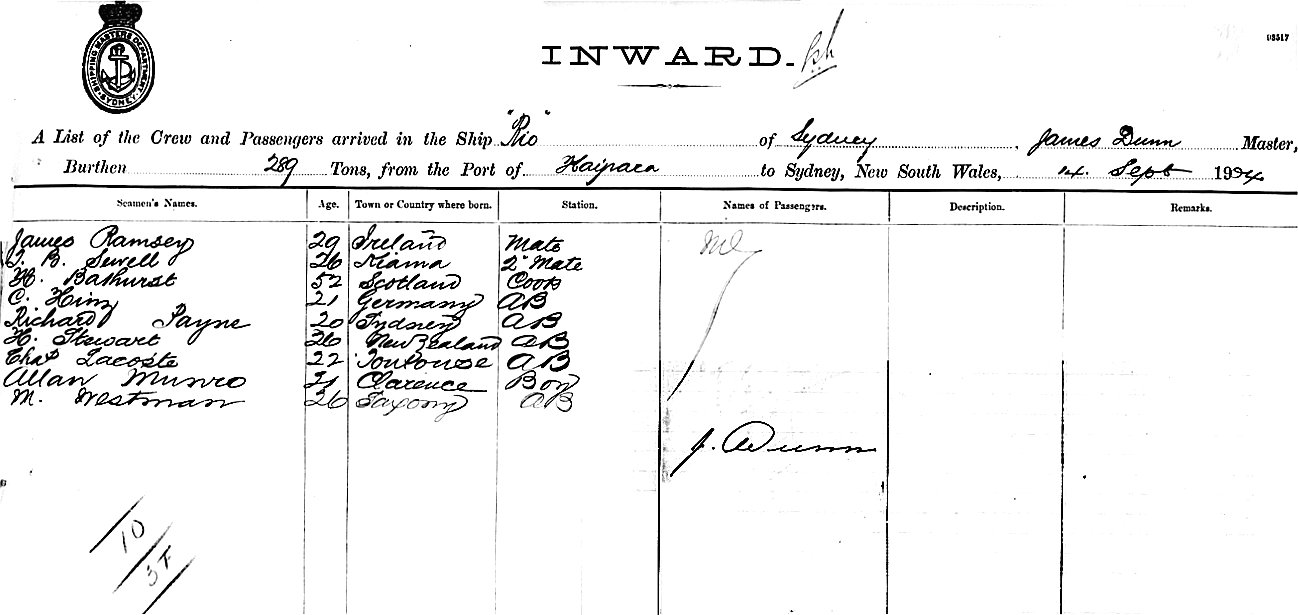 INWARD.
03517
SHIPPING MASTERS DEPARTMENT SYDNEY
A List of the Crew and Passengers arrived in the Ship "Rio" of Sydney, James Dunn Master,
Burthen 289 Tons, from the Port of Kaipara to Sydney, New South Wales, 14. Sept 19
Seamen's Names. Age. Town or Country where born. Station. Names of Passengers. Description. Remarks.
James Ramsey 29 Ireland Mate Nil
B. Sewell 26 Kiama 2" Mate
H. Bathurst 52 Scotland Cook
C. 21 Germany AB
Richard Payne 20 Sydney AB
H. Stewart 26 New Zealand AB
Chas Lacoste 22 Toulouse AB
Allan Munro 21 Clarence Boy
M. Westman 26 Saxony AB
J. Dunn
10